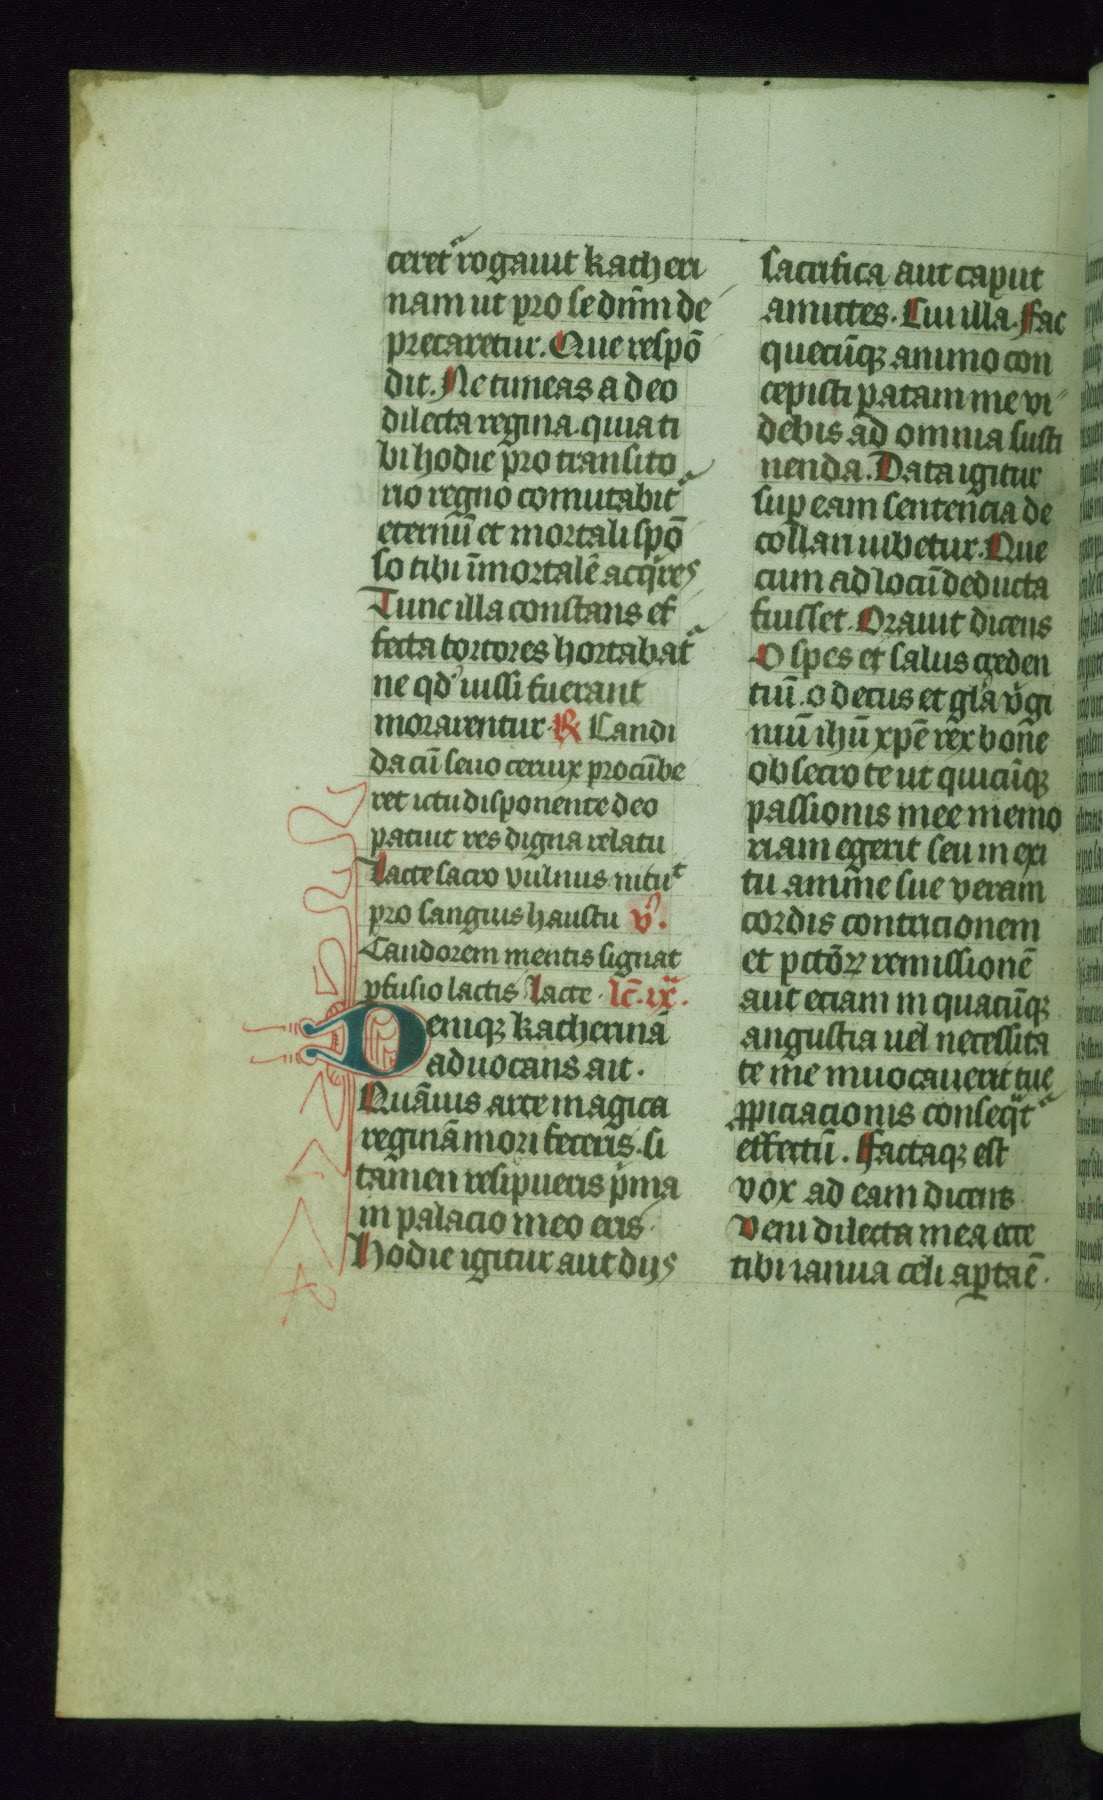 ceret᷑ rogauit katheri
nam ut pro se dn̄m de
precaretur. Que respō
dit. Ne timeas a deo
dilecta regina. quia ti
bi hodie pro transito
rio regno comutabit᷑
eternū et mortali spō
so tibi īmortalē acq̇res
Tunc illa constans ef
fecta tortores hortabat᷑
ne qd' iussi fuerant
morarentur. ℟ Candi
da cū seuo ceruix procūbe
ret ictu disponente deo
patuit res digna relatu
Lacte sacro vulnus nitu᷑
pro sanguis haustu ℣.
Candorem mentis signat
ꝓfusio lactis Lacte. lc̄. ix᷑.
Deniqꝫ katherinā
aduocans ait.
Quāuis arte magica
reginā mori feceris. si
tamen resipueris p̍ma
in palacio meo eris.
Hodie igitur aut dijs
sacrifica aut caput
amittes. Cui illa. Fac
quecūqꝫ animo con
cepisti ꝑatam me vi
debis ad omnia susti
nenda. Data igitur
suꝑ eam sentencia de
collari iubetur. Que
cum ad locū deducta
fuisset. Orauit dicens
O spes et salus creden
tiū. o decus et gl̄a v̍gi
niū ihū xp̄e rex bone
obsecro te ut quicūqꝫ
passionis mee memo
riam egerit seu in exi
tu anime sue veram
cordis contricionem
et pctōꝝ remissionē
aut etiam in quacūqꝫ
angustia uel necessita
te me inuocauerit tue
ꝓpiciacionis conseq̇t᷑
effectū. Factaqꝫ est
vox ad eam dicens
Veni dilecta mea ecce
tibi ianua celi aꝑta ē.